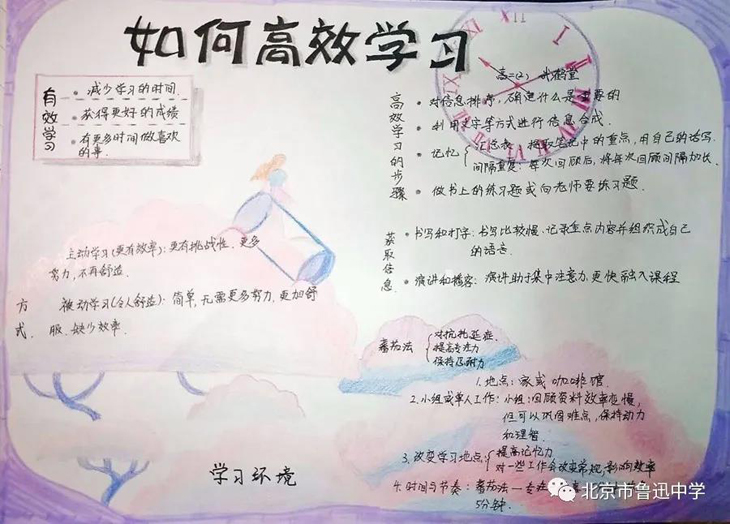 如何高效学习
高二(2)
有效学习
• 减少学习的时间.
• 获得更好的成绩
• 有更多时间做喜欢
的事.
主动学习(更有效率):更有挑战性、更多
努力,不再舒适.
方式.
被动学习(令人舒适):简单,无需更多努力,更加舒
服、缺少效率.
学习环境
高效学习的步骤
• 对信息排序,确定什么是重要的
• 利用文字等方式进行信息合成.
• 记忆
汇总表:摘取笔记中的重点,用自己的话写.
间隔重复:每次回顾后,将每次回顾间隔加长.
• 做书上的练习题或向老师要练习题.
获取信息
• 书写和打字:书写比较慢、记录重点内容并组织成自己
的语言.
• 演讲和播客:演讲助于集中注意力,更快融入课程
番茄法
对抗拖延症.
提高专注力
保持忍耐力
1.地点:家或咖啡馆.
2.小组或单人工作:小组:回顾资料效率变慢,
但可以巩固难点,保持动力
和理智.
3.改变学习地点:
提高记忆力
对一些工作会改变常规,影响效率
4.时间与节奏:番茄法—专注
5分钟.
北京市鲁迅中学